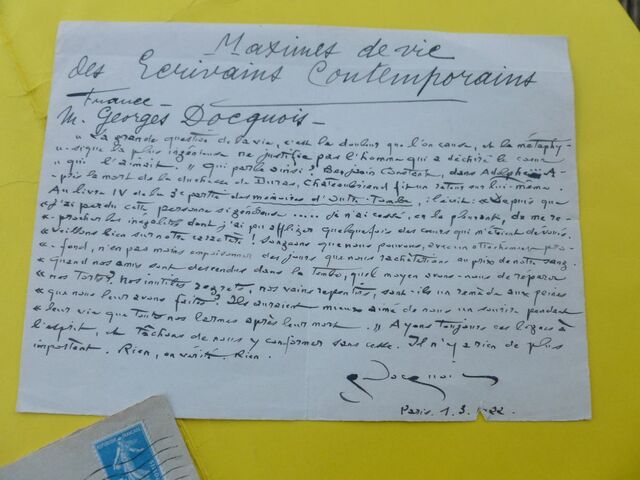 Maximes de vie
des Ecrivains Contemporains
France —
M. Georges Docquois —
" La grande question de la vie, c'est la douleur que l'on cause, et la métaphy-
" -sique la plus ingénieuse ne justifie pas l'homme qui a déchiré le cœur
" qui l'aimait. " Qui parle ainsi? Benjamin Constant, dans Adolphe. A-
près la mort de la duchesse de Duras, Châteaubriand fit un retour sur lui-même.
Au livre IV de la 3e partie des mémoires d'Outre-Tombe, il écrit: « Depuis que
« j'ai perdu cette personne si généreuse ..... je n'ai cessé, en la pleurant, de me re-
« procher les inégalités dont j'ai pu affliger quelquefois des cœurs qui m'étaient dévoués.
« Veillons bien sur notre caractère! Songeons que nous pouvons, avec un attachement pro-
« fond, n'en pas moins empoisonner des jours que nous rachèterions au prix de notre sang.
« Quand nos amis sont descendus dans la tombe, quel moyen avons-nous de réparer
« nos torts? Nos inutiles regrets, nos vains repentirs, sont-ils un remède aux peines
« que nous leur avons faites? Ils auraient mieux aimé de nous un sourire pendant
« leur vie que toutes nos larmes après leur mort. " Ayons toujours ces lignes à
l'esprit, et tâchons de nous y conformer sans cesse. Il n'y a rien de plus
important. Rien, en vérité. Rien.
G Docquois
Paris. 1. 3. 1922.